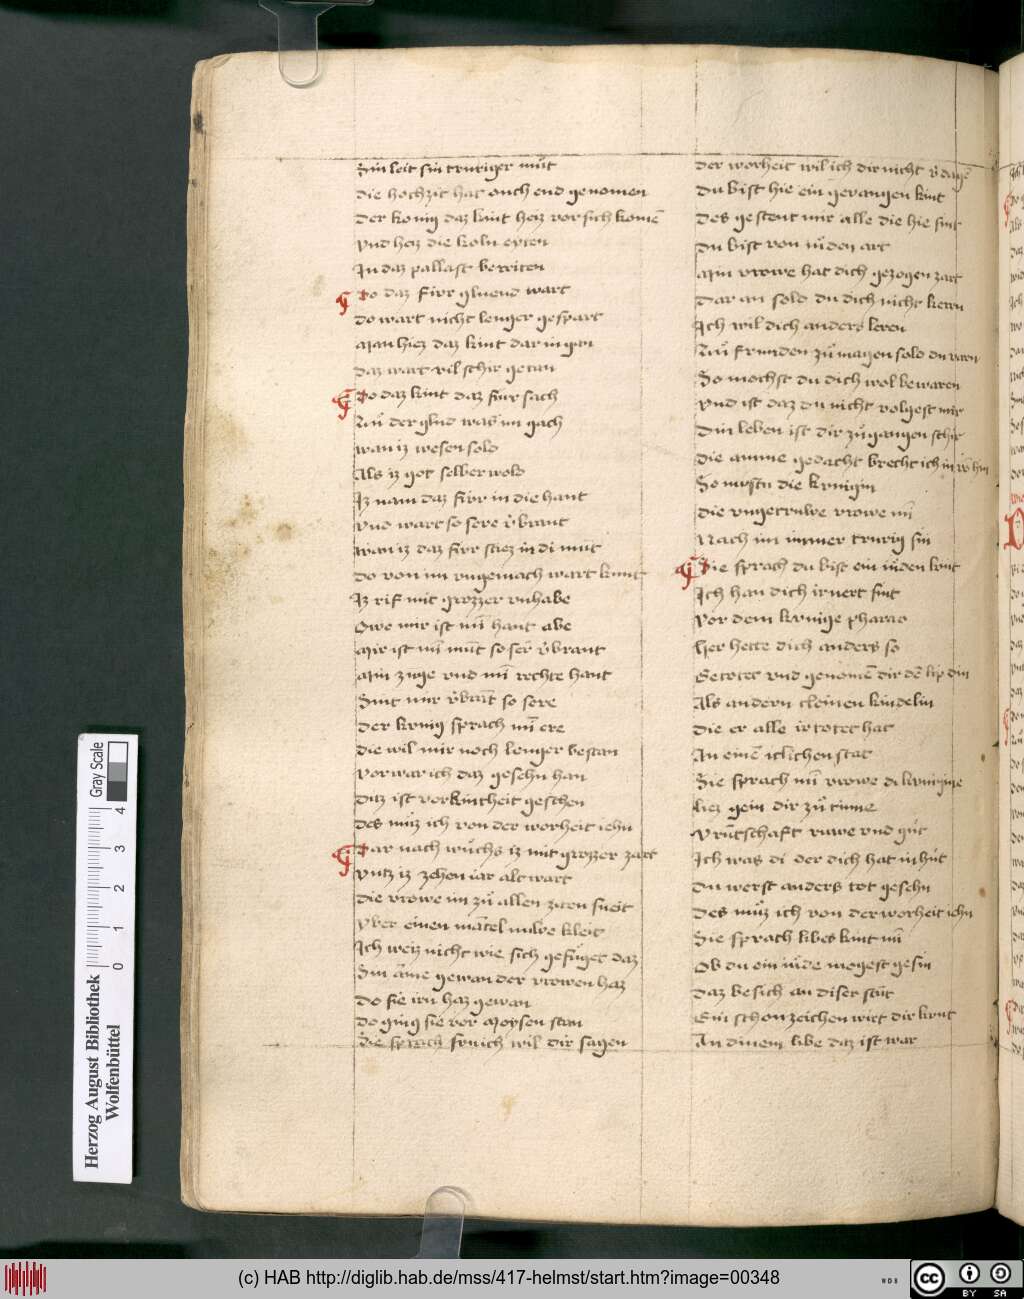 Sin leit sin truriger mut
die hochzit hat ouch end genomen
Der konig daz kint hez vor sich komē
Vnd hez die koln eyten
In daz pallast bereiten
Do daz fivr gluend wart
do wart nicht lenger gespart
Man hiez daz kint dar in gan
Daz wart vil schir getan
Do daz kint daz fiur sach
Zu der glud was im gach
wan iz wesen sold
Als iz got selber wold
Iz nam daz fivr in die hant
Vnd wart so sere v̄brant
wan iz daz fivr stiez in di munt
do von im vngemach wart kunt
Iz rif mit grozzer vnhabe
Owe mir ist mī hant abe
Mir ist mī munt so ser v̄brant
Min zuge vnd mī rechte hant
Sint mir v̄brāt so sere
Der konig sprach mī ere
die wil mir noch lenger bestan
Vorwar ich daz gesehn han
Daz ist von kintheit geschen
Des muz ich von der worheit iehn
Dar nach wuchs iz mit grozer zart
Vntz iz zehen iar alt wart
die vrowe im zu allen ziten sneit
Vber einen mātel nuwe kleit
Ich weiz nicht wie sich gefuget daz
Sin āme gewan der vrowen haz
do sie irn haz gewan
do ging sie vor Moysen stan
die sprach frū ich wil dir sagen
der worheit wil ich dir nicht v̄dagē
Du bist hie ein gevangen kint
Des gestent mir alle die hie sint
Du bist von iuden art
Min vrowe hat dich gezogen zart
Dar an sold du dich nicht kern
Ich wil dich anders leren
Zu frunden zu magen sold du varn
So mochst du dich wol bewaren
Vnd ist daz du nicht volgest mir
Din leben ist dir zugangen schir
die amme gedacht brecht ich in vō hin
So must die kunigin
die vngetruwe vrowe mī
Nach im immer trurig sin
Sie sprach du bist ein iuden kint
Ich han dich irnert sint
Vor dem kunige pharao
Her hette dich anders so
Getotet vnd genomē dir dē lip din
Als andern cleinen kindelin
die er alle irtotet hat
In einē iclichen stat
Sie sprach mī vrowe di kuniginne
liez gein dir zu tinne
Vrūtschaft ruwe vnd gut
Ich was di der dich hat in hut
Du werst anders tot gesehn
Des muz ich von der worheit iehn
Sie sprach libes kint mī
Ob du ein iude mogest gesin
daz besich an diser stūt
Ein schon zeichen wirt dir kunt
An dinem libe daz ist war
Herzog August Bibliothek
Wolfenbüttel
0 1 2 3 4
Gray Scale
(c) HAB http://diglib.hab.de/mss/417-helmst/start.htm?image=00348
WDB
cc BY SA